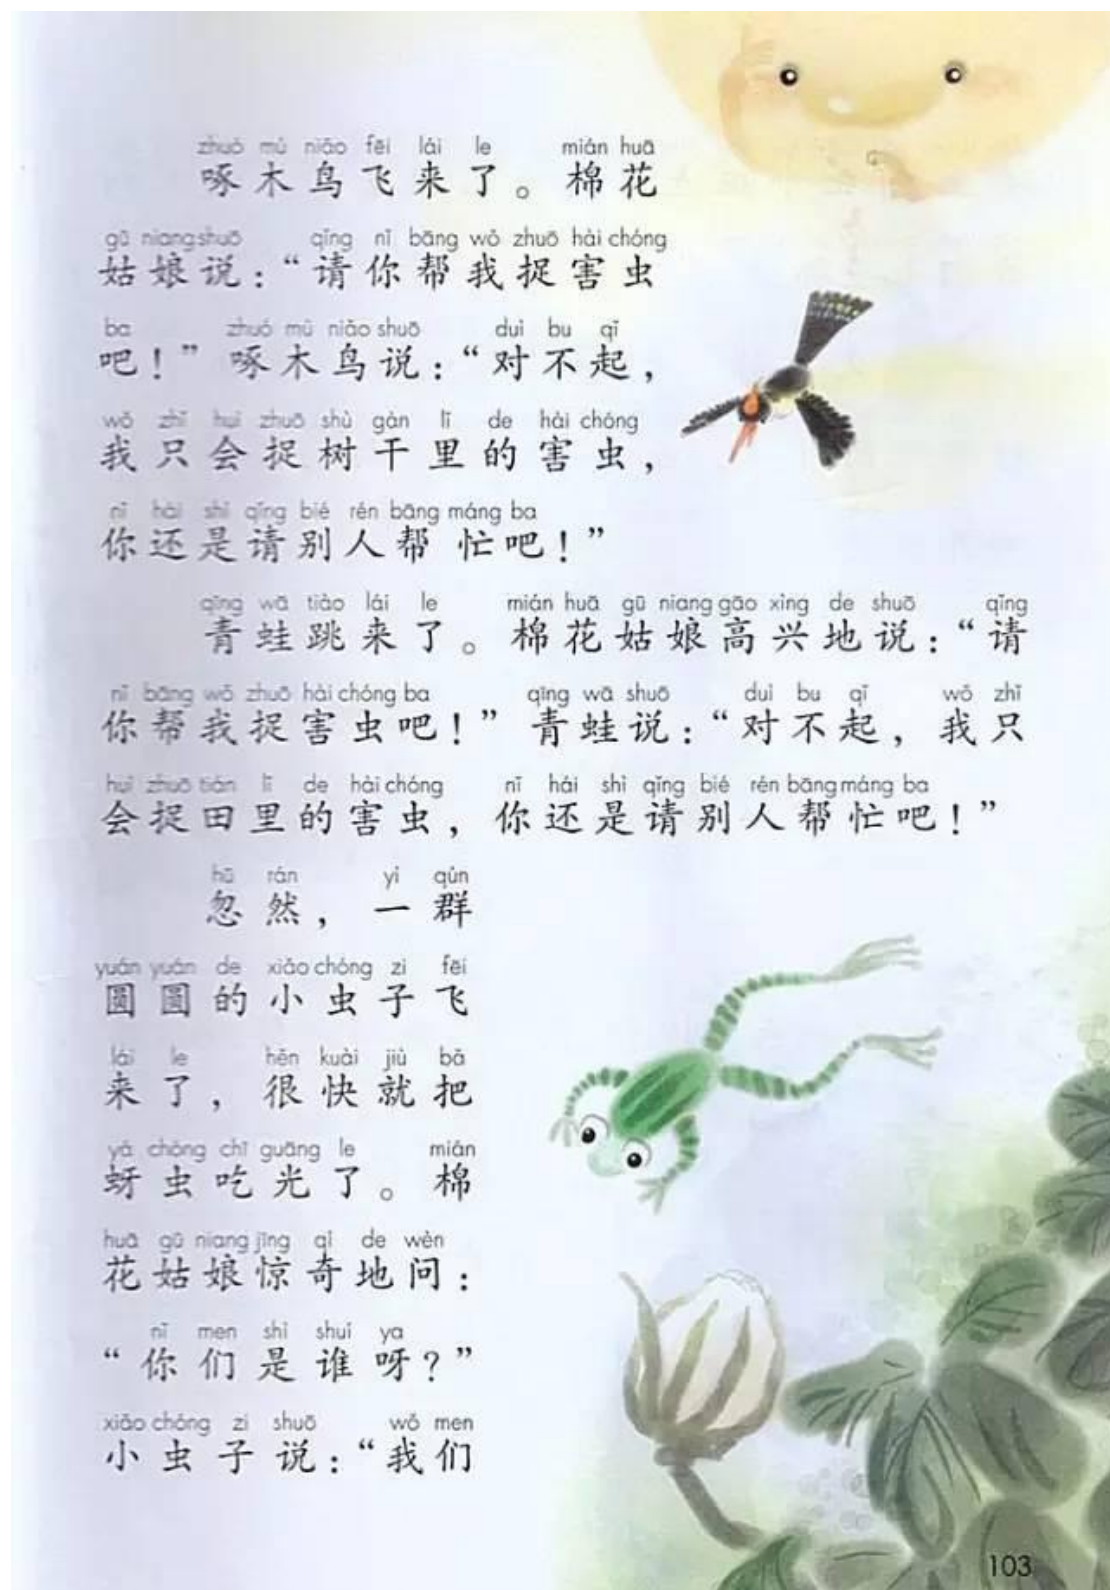 zhuó mù niǎo fēi lái le mián huā
啄木鸟飞来了。棉花
gū niang shuō qǐng nǐ bāng wǒ zhuō hài chóng
姑娘说：“请你帮我捉害虫
ba zhuó mù niǎo shuō duì bu qǐ
吧！”啄木鸟说：“对不起，
wǒ zhǐ huì zhuō shù gàn lǐ de hài chóng
我只会捉树干里的害虫，
nǐ hái shì qǐng bié rén bāng máng ba
你还是请别人帮忙吧！”
qīng wā tiào lái le mián huā gū niang gāo xìng de shuō qǐng
青蛙跳来了。棉花姑娘高兴地说：“请
nǐ bāng wǒ zhuō hài chóng ba qīng wā shuō duì bu qǐ wǒ zhǐ
你帮我捉害虫吧！”青蛙说：“对不起，我只
huì zhuō tián lǐ de hài chóng nǐ hái shì qǐng bié rén bāng máng ba
会捉田里的害虫，你还是请别人帮忙吧！”
hū rán yì qún
忽然，一群
yuán yuán de xiǎo chóng zi fēi
圆圆的小虫子飞
lái le hěn kuài jiù bǎ
来了，很快就把
yá chóng chī guāng le mián
蚜虫吃光了。棉
huā gū niang jīng qí de wèn
花姑娘惊奇地问：
nǐ men shì shuí ya
“你们是谁呀？”
xiǎo chóng zi shuō wǒ men
小虫子说：“我们
103